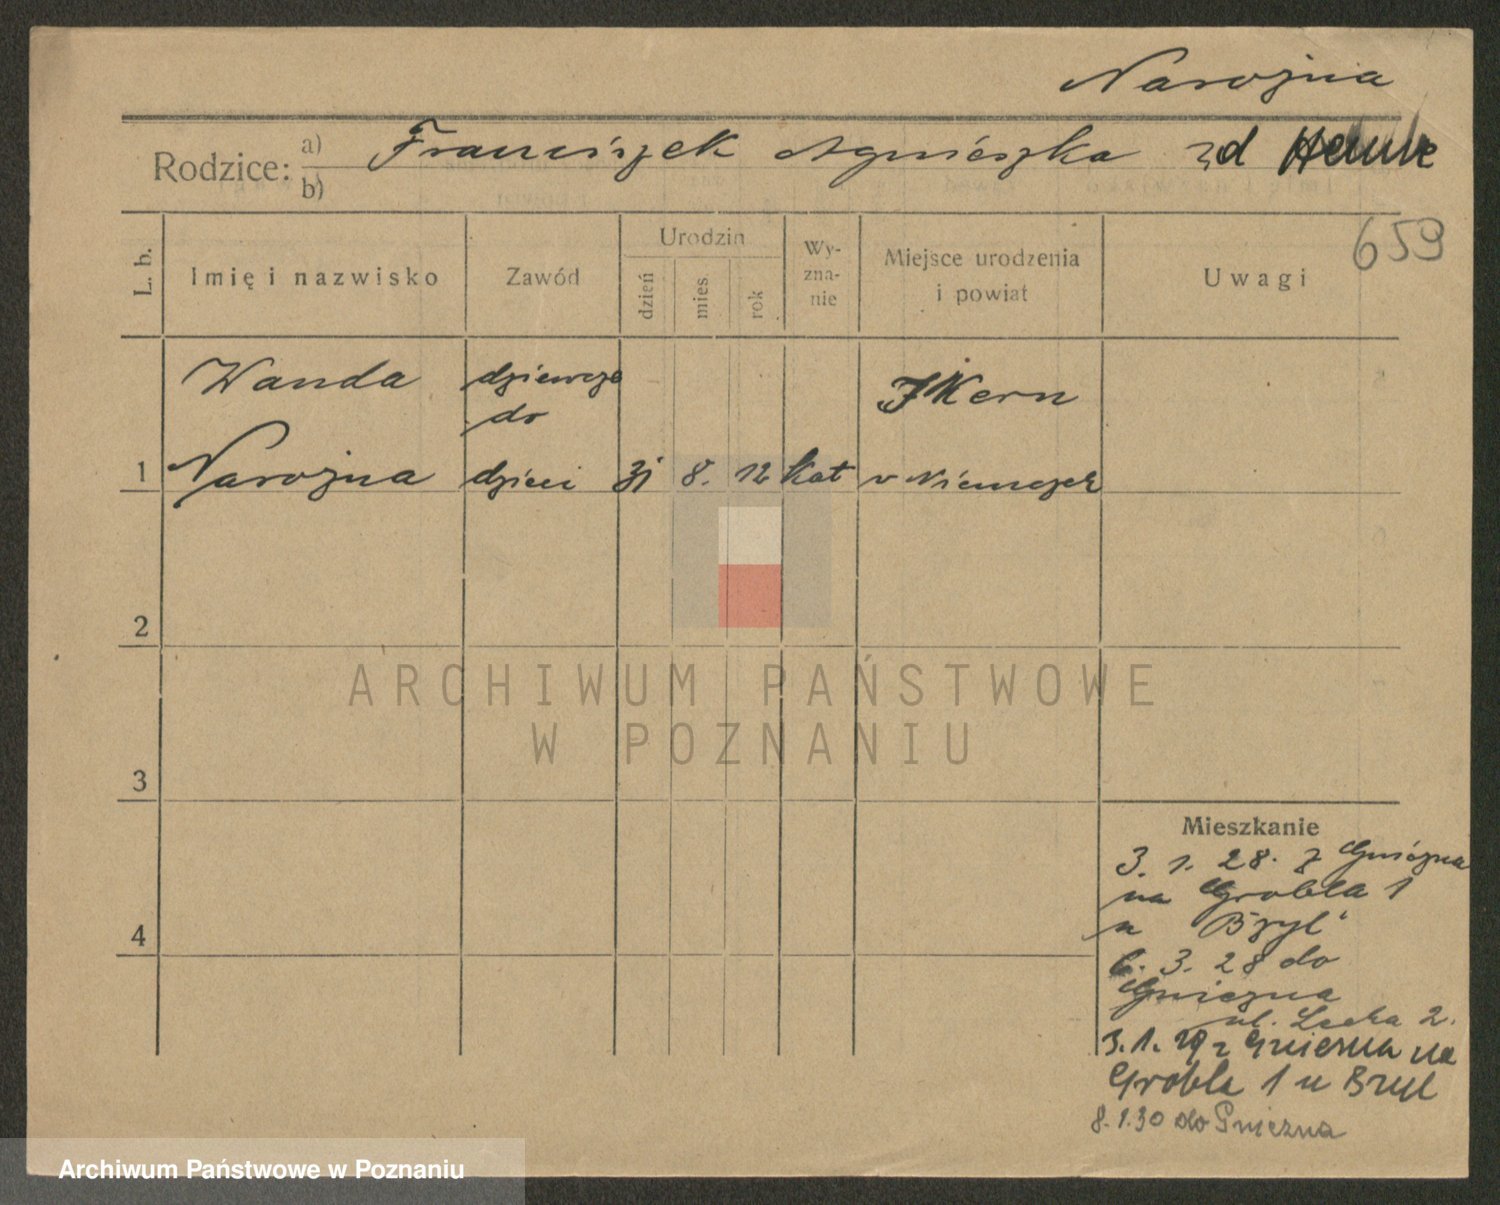 Narożna
Rodzice: a) Franciszek Agnieszka zd
b)
659
L. b.
Imię i nazwisko
Zawód
Urodzin
dzień
mies.
rok
Wy-
zna-
nie
Miejsce urodzenia
i powiat
Uwagi
Wanda dziewczę
do
1 Narożna dzieci 31 8. 12 kat w Niemczech
2
3
4
Mieszkanie
3. 1. 28. z Gniezna
na Grobla 1
u Bzyl
6. 3. 28 do
Gniezna
ul. 2.
3. 1. 29 z Gniezna na
Grobla 1 u Bzyl
8. 1. 30 do Gniezna
ARCHIWUM PAŃSTWOWE
W POZNANIU
Archiwum Państwowe w Poznaniu